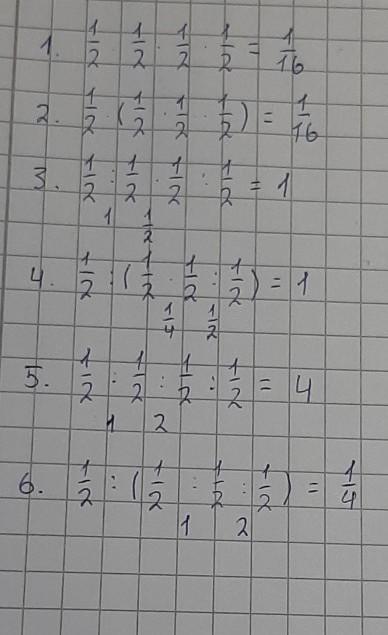 1. 1/2 · 1/2 · 1/2 · 1/2 = 1/16
2. 1/2 · (1/2 · 1/2 · 1/2) = 1/16
3. 1/2 : 1/2 · 1/2 : 1/2 = 1
1 1/2
4. 1/2 : (1/2 · 1/2 : 1/2) = 1
1/4 1/2
5. 1/2 : 1/2 : 1/2 : 1/2 = 4
1 2
6. 1/2 : (1/2 : 1/2 : 1/2) = 1/4
1 2